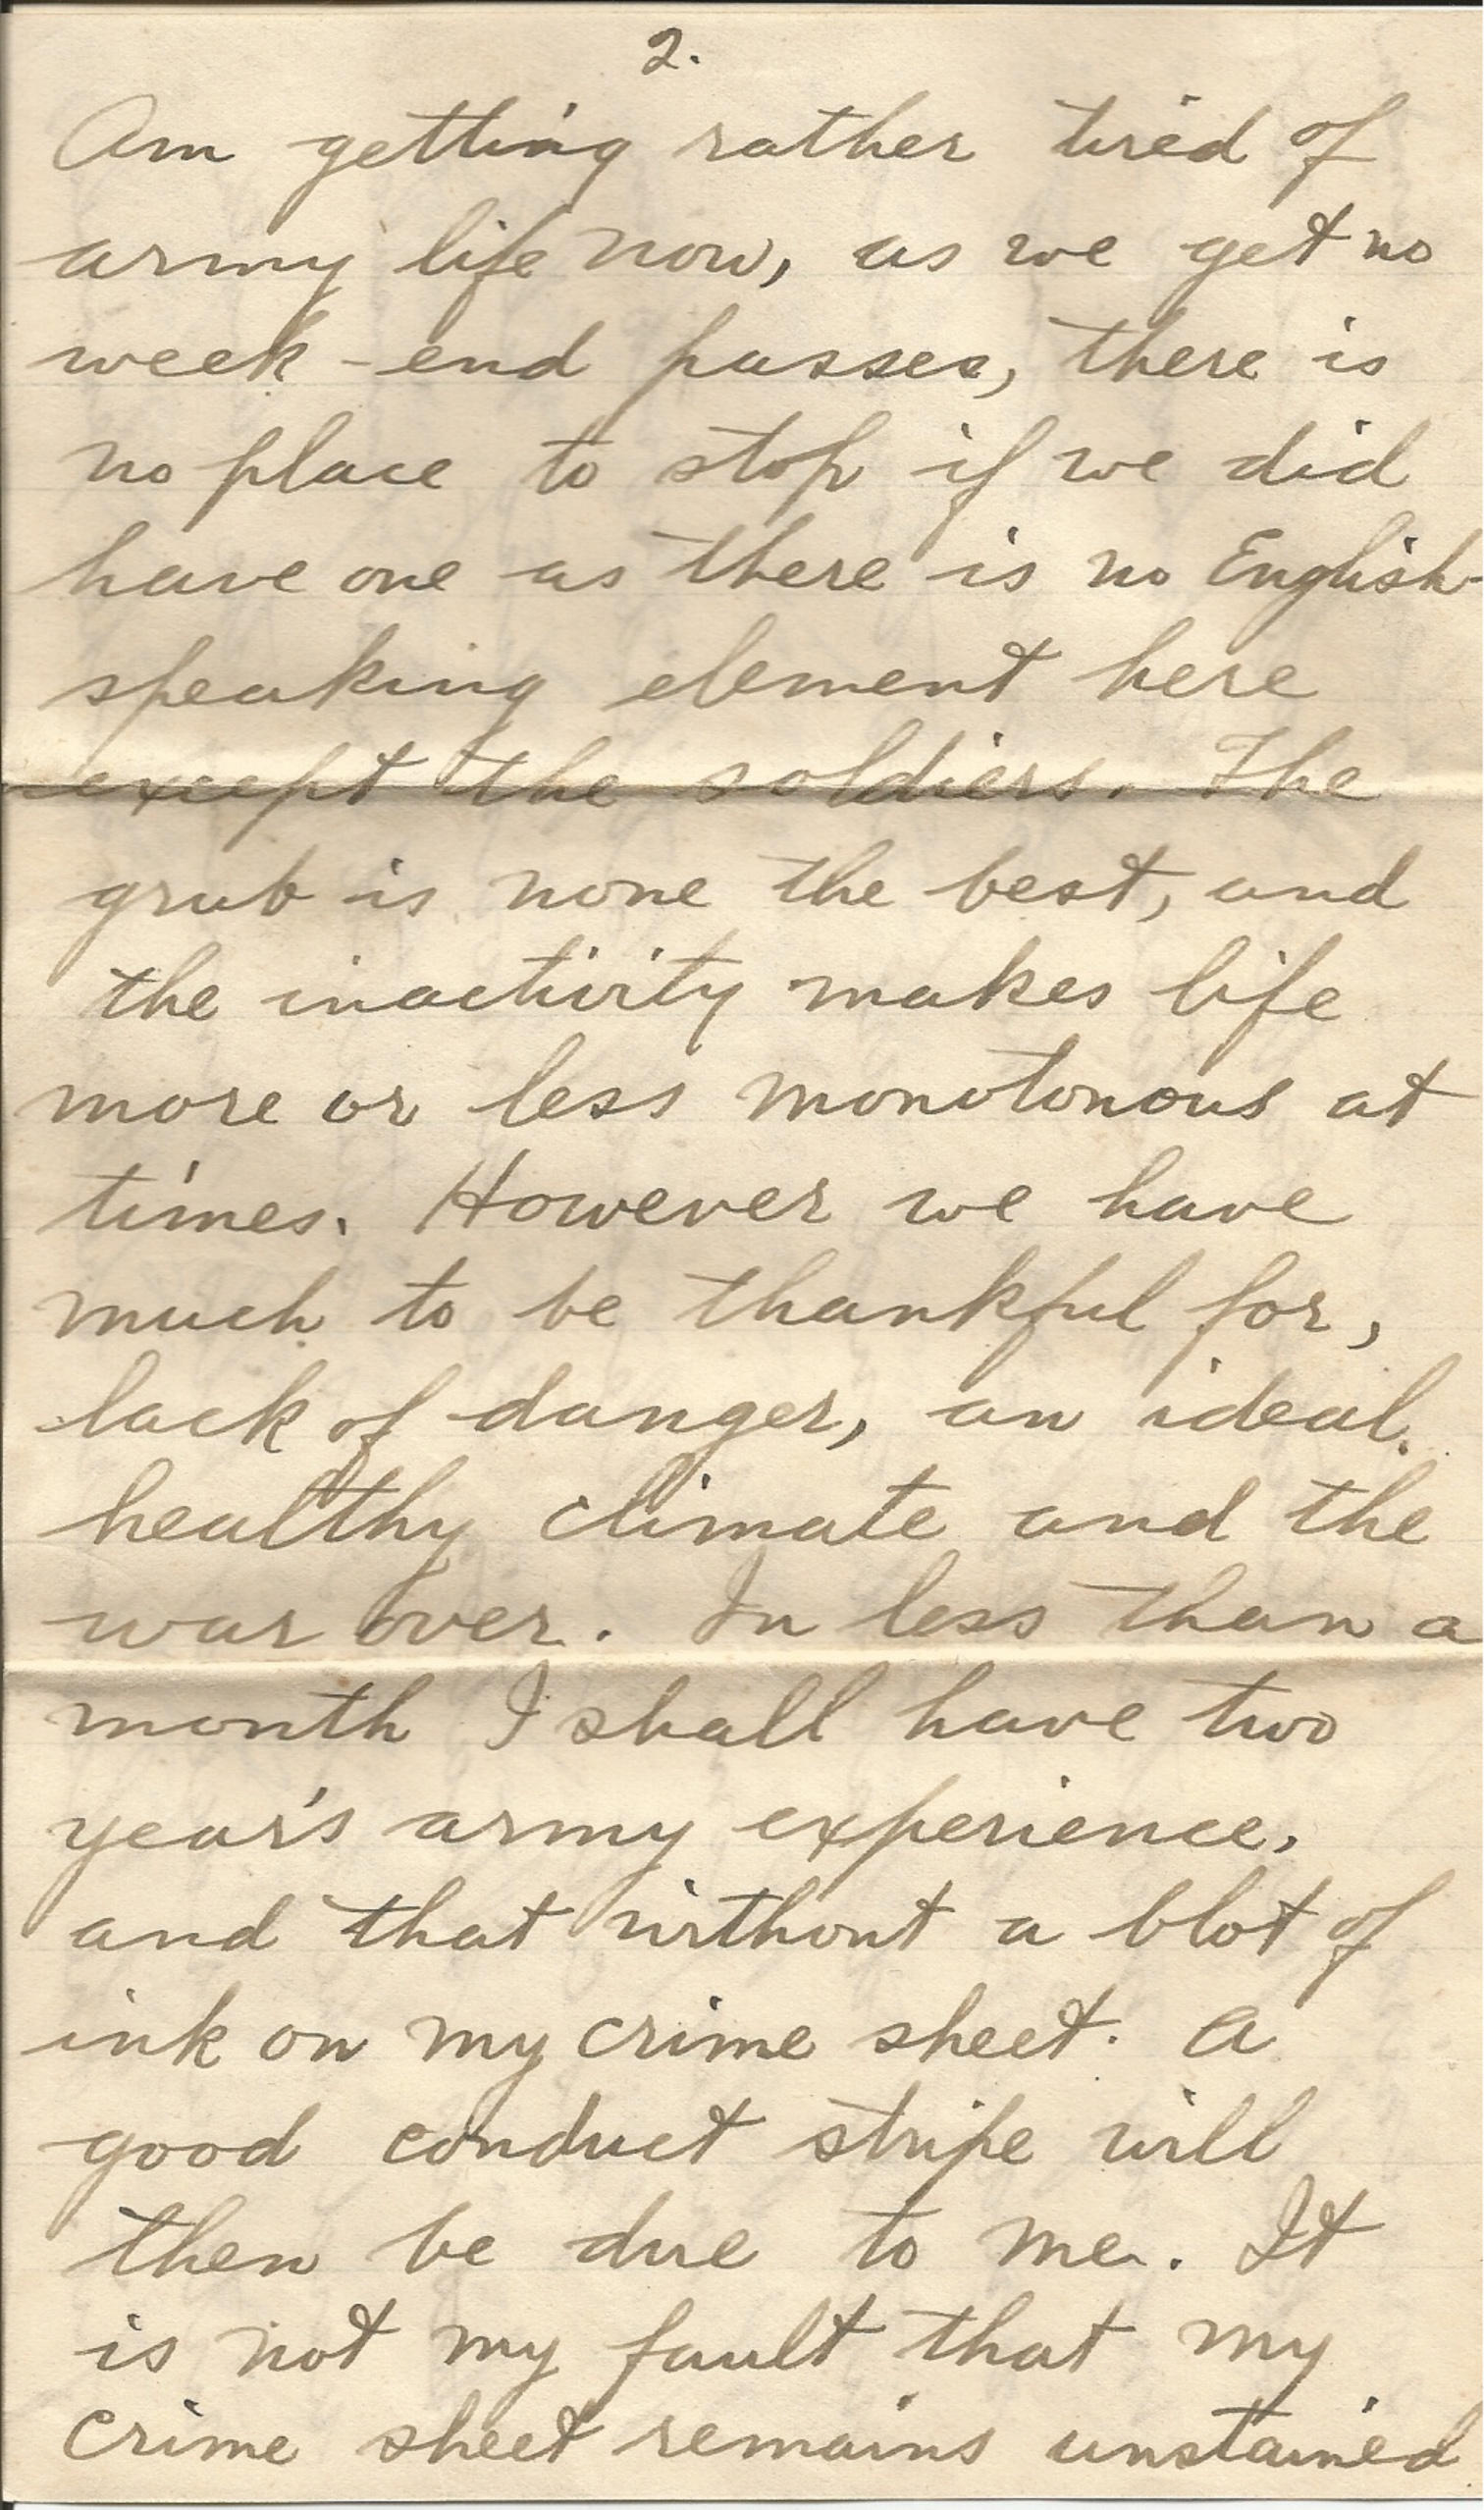 2.
Am getting rather tired of
army life now, as we get no
week-end passes, there is
no place to stop if we did
have one as there is no English-
speaking element here
except the soldiers. The
grub is none the best, and
the inactivity makes life
more or less monotonous at
times. However we have
much to be thankful for,
lack of danger, an ideal,
healthy climate and the
war over. In less than a
month I shall have two
year's army experience,
and that without a blot of
ink on my crime sheet. A
good conduct stripe will
then be due to me. It
is not my fault that my
crime sheet remains unstained